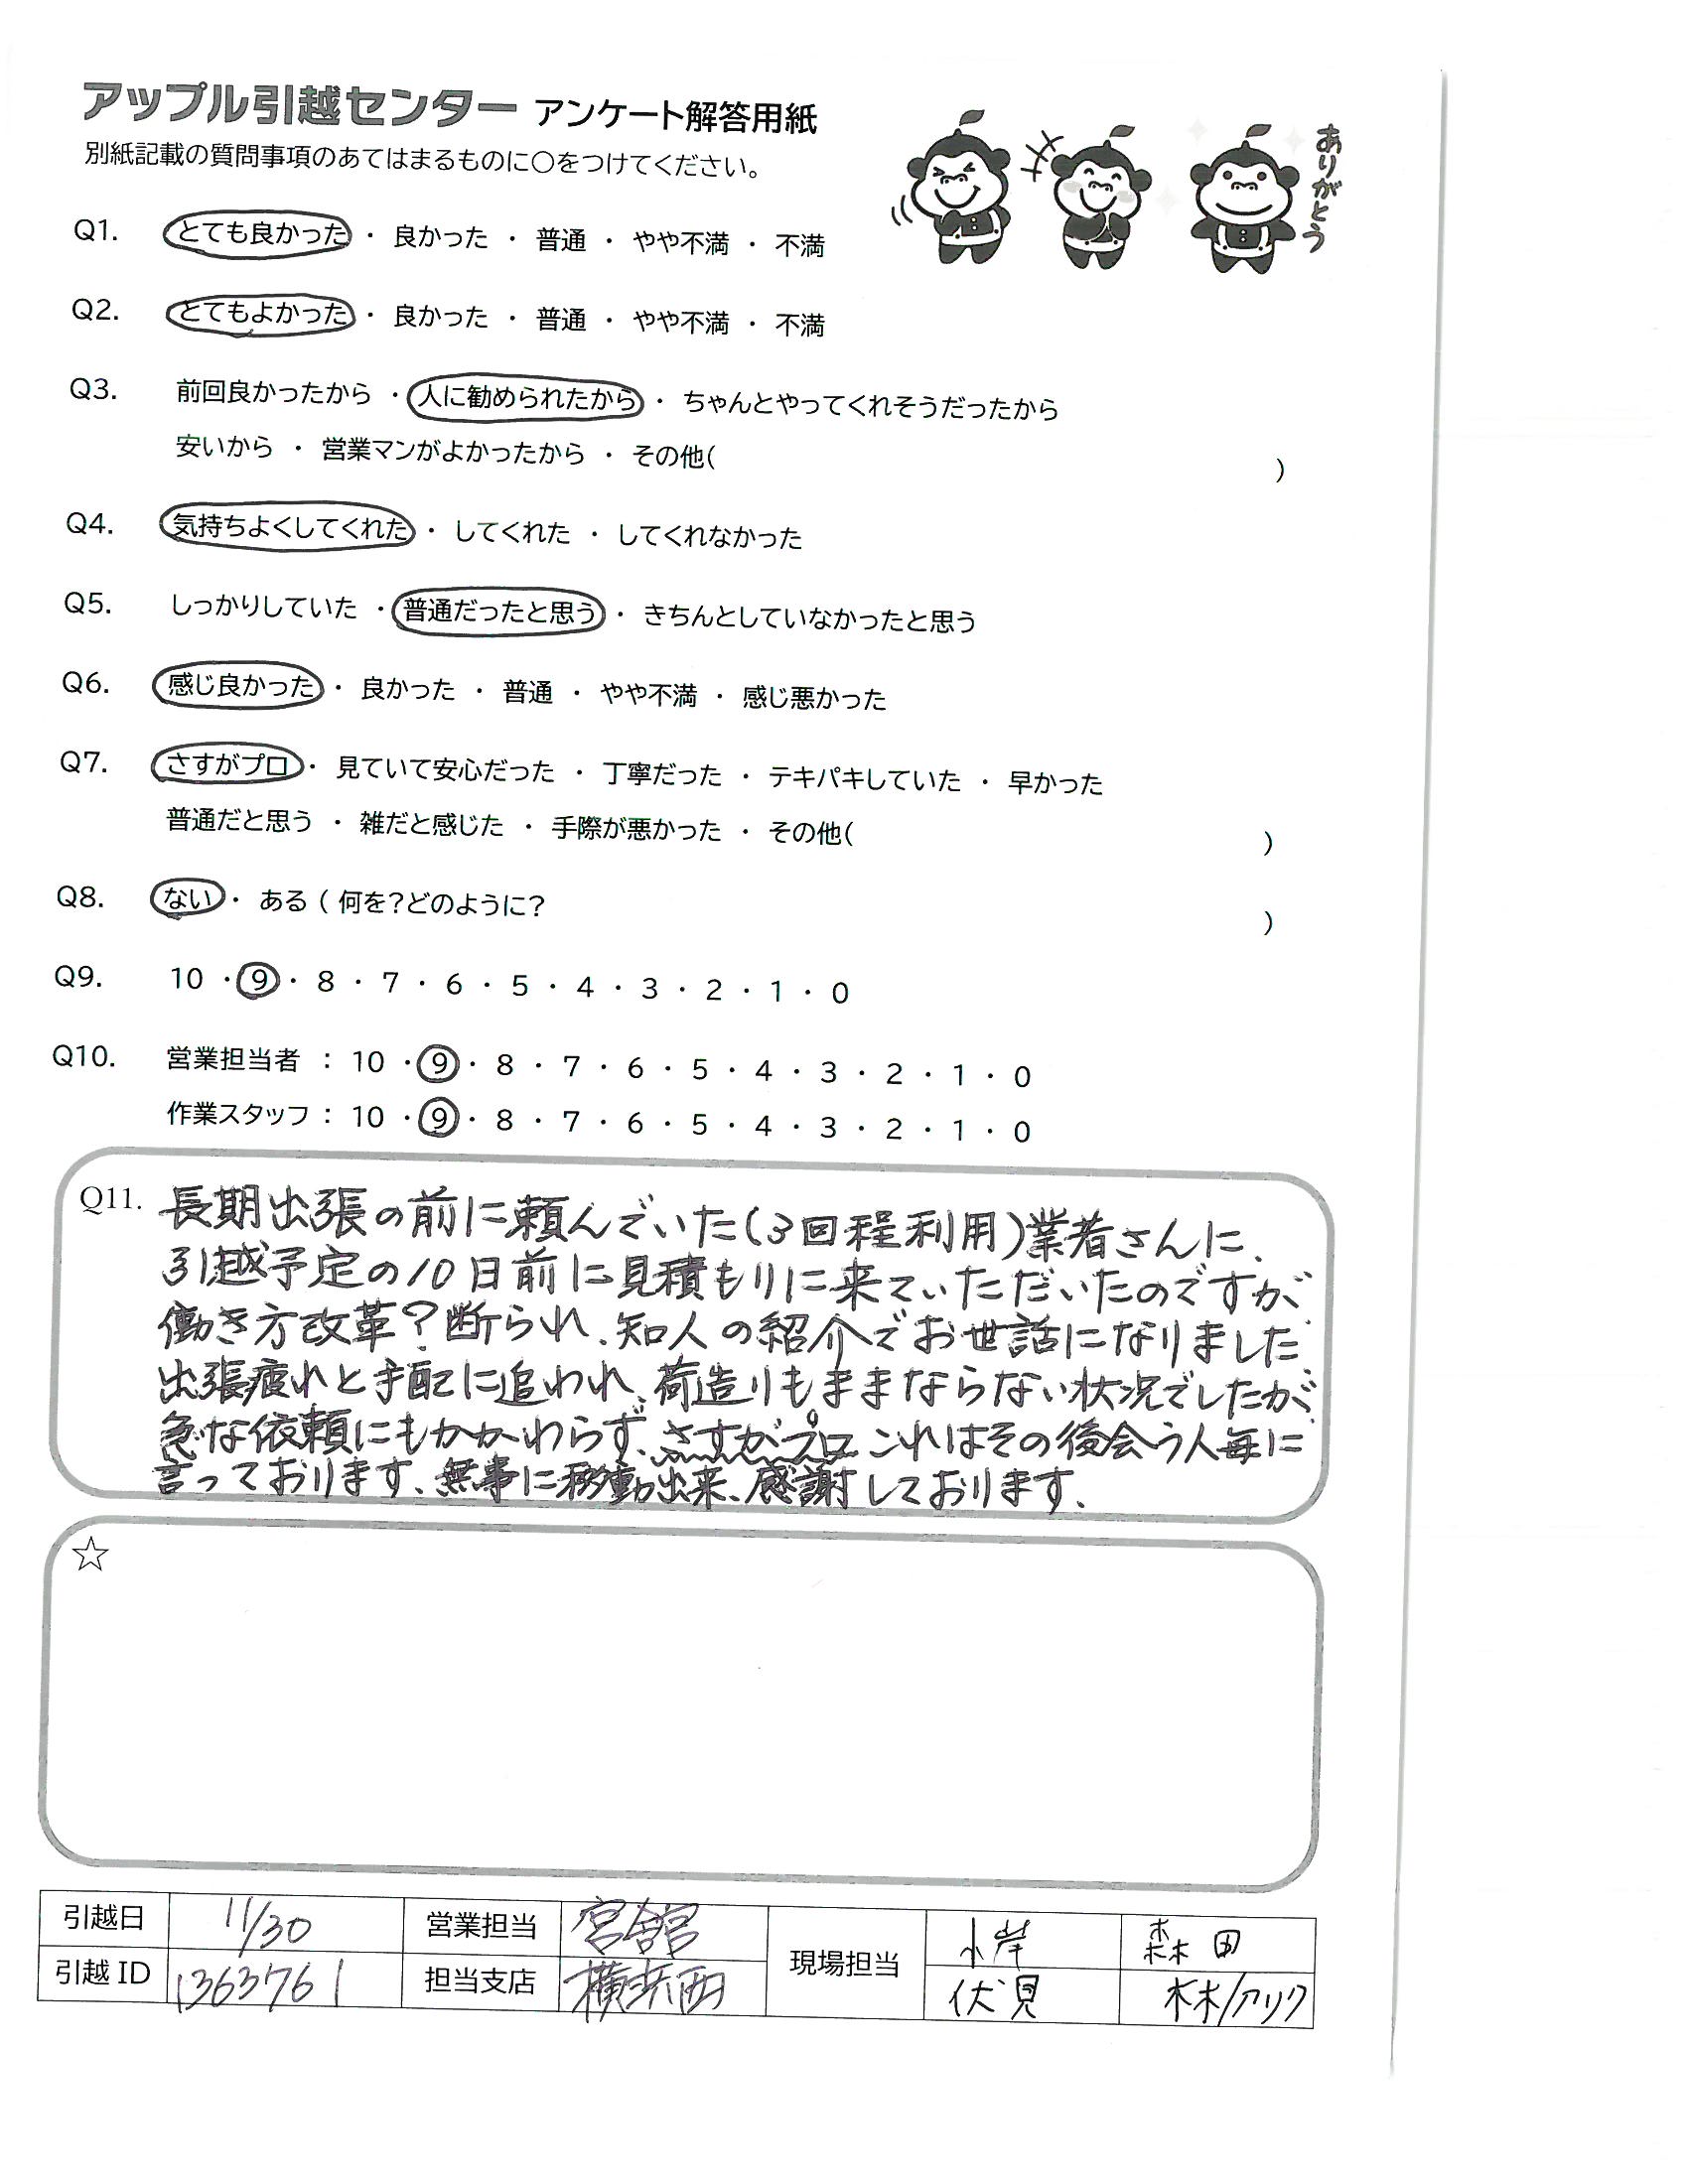 アップル引越センター アンケート解答用紙
別紙記載の質問事項のあてはまるものに○をつけてください。
ありがとう
Q1. とても良かった ・ 良かった ・ 普通 ・ やや不満 ・ 不満
Q2. とてもよかった ・ 良かった ・ 普通 ・ やや不満 ・ 不満
Q3. 前回良かったから ・ 人に勧められたから ・ ちゃんとやってくれそうだったから
安いから ・ 営業マンがよかったから ・ その他( )
Q4. 気持ちよくしてくれた ・ してくれた ・ してくれなかった
Q5. しっかりしていた ・ 普通だったと思う ・ きちんとしていなかったと思う
Q6. 感じ良かった ・ 良かった ・ 普通 ・ やや不満 ・ 感じ悪かった
Q7. さすがプロ ・ 見ていて安心だった ・ 丁寧だった ・ テキパキしていた ・ 早かった
普通だと思う ・ 雑だと感じた ・ 手際が悪かった ・ その他( )
Q8. ない ・ ある ( 何を?どのように? )
Q9. 10 ・ 9 ・ 8 ・ 7 ・ 6 ・ 5 ・ 4 ・ 3 ・ 2 ・ 1 ・ 0
Q10. 営業担当者 : 10 ・ 9 ・ 8 ・ 7 ・ 6 ・ 5 ・ 4 ・ 3 ・ 2 ・ 1 ・ 0
作業スタッフ : 10 ・ 9 ・ 8 ・ 7 ・ 6 ・ 5 ・ 4 ・ 3 ・ 2 ・ 1 ・ 0
Q11. 長期出張の前に頼んでいた(3回程利用)業者さんに、
引越予定の10日前に見積もりに来ていただいたのですが、
働き方改革?断られ、知人の紹介でお世話になりました。
出張疲れと手配に追われ、荷造りもままならない状況でしたが、
急な依頼にもかかわらず、さすがプロ これはその後会う人毎に
言っております、無事に移動出来、感謝しております、
☆
引越日 11/30 営業担当 宮舘 現場担当 小岸 森田
引越 ID 1363761 担当支店 横浜西 伏見 林/アリク